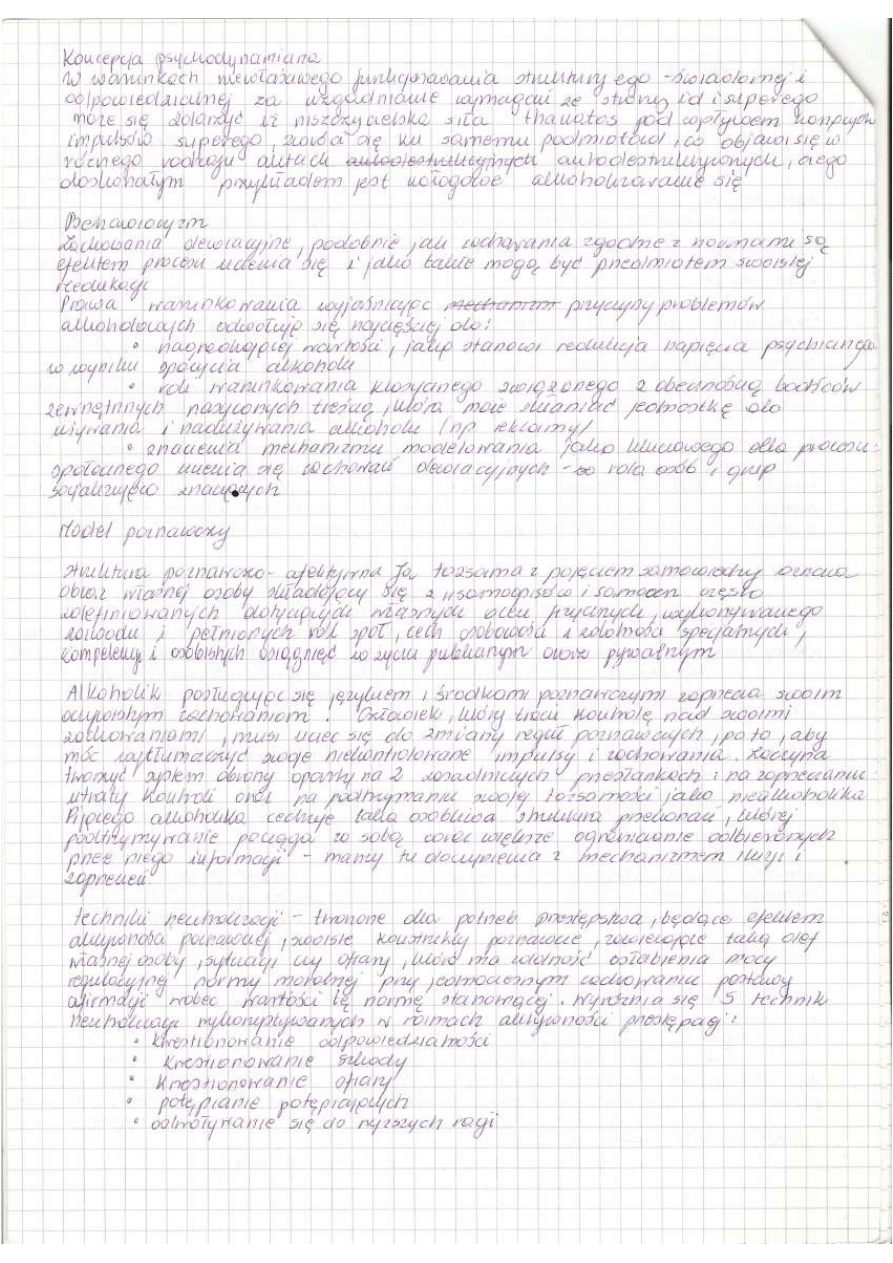 Koncepcja psychodynamiczna
W warunkach niewłaściwego funkcjonowania struktury ego - świadomej i
odpowiedzialnej za uzgadnianie wymagań ze strony id i superego
może się zdarzyć iż niszczycielska siła thanatos pod wpływem
impulsów superego, zwraca się ku samemu podmiotowi, co objawia się w
różnego rodzaju aktach autodestrukcyjnych autodestrukcyjnych, czego
doskonałym przykładem jest nałogowe alkoholizowanie się
Behawioryzm
Zachowania dewiacyjne, podobnie jak zachowania zgodne z normami są
efektem procesu uczenia się i jako takie mogą być przedmiotem swoistej
redukcji
Prawa warunkowania wyjaśniając mechanizm przyczyny problemów
alkoholowych odwołują się najczęściej do:
• nagradzającej wartości, jaką stanowi redukcja napięcia psychicznego
w wyniku spożycia alkoholu
• roli warunkowania klasycznego związanego z obecnością bodźców
zewnętrznych nasyconych treścią, która może skłaniać jednostkę do
używania i nadużywania alkoholu /np reklamy/
• znaczenia mechanizmu modelowania jako kluczowego dla procesu
społecznego uczenia się zachowań dewiacyjnych - rola osób i grup
socjalizująco znaczących
Model poznawczy
Struktura poznawczo - afektywna Ja tożsama z pojęciem samowiedzy oznacza
obraz własnej osoby składający się z samoopisów i samoocen często
zdefiniowanych dotyczących własnych cech fizycznych, wykonywanego
zawodu i pełnionych ról społ, cech osobowości i zdolności specjalnych,
kompetencji i osobistych osiągnięć w życiu publicznym oraz prywatnym
Alkoholik posługując się językiem i środkami poznawczymi zaprzecza swoim
oczywistym zachowaniom. Człowiek, który traci kontrolę nad swoimi
zachowaniami, musi uciec się do zmiany reguł poznawczych, po to, aby
móc wytłumaczyć swoje niekontrolowane impulsy i zachowania. Zaczyna
tworzyć system obrony oparty na 2 zasadniczych przesłankach: na zaprzeczaniu
utraty kontroli oraz na podtrzymaniu swojej tożsamości jako niealkoholika
Pijącego alkoholika cechuje taka osobliwa struktura przekonań, której
podtrzymywanie pociąga za sobą coraz większe ograniczanie odbieranych
przez niego informacji - mamy tu do czynienia z mechanizmem iluzji i
zaprzeczeń.
Techniki neutralizacji - tworzone dla potrzeb przestępstwa, będące efektem
aktywności poznawczej, swoiste konstrukty poznawcze, zawierające taką def
własnej osoby, sytuacji czy ofiary, która ma zdolność osłabienia mocy
regulacyjnej normy moralnej przy jednoczesnym zachowaniu postawy
afirmacji wobec wartości tę normę stanowiącej. Wyróżnia się 5 technik
neutralizacji wykorzystywanych w ramach aktywności przestępczej:
• kwestionowanie odpowiedzialności
• Kwestionowanie szkody
• Kwestionowanie ofiary
• potępianie potępiających
• odwoływanie się do wyższych racji